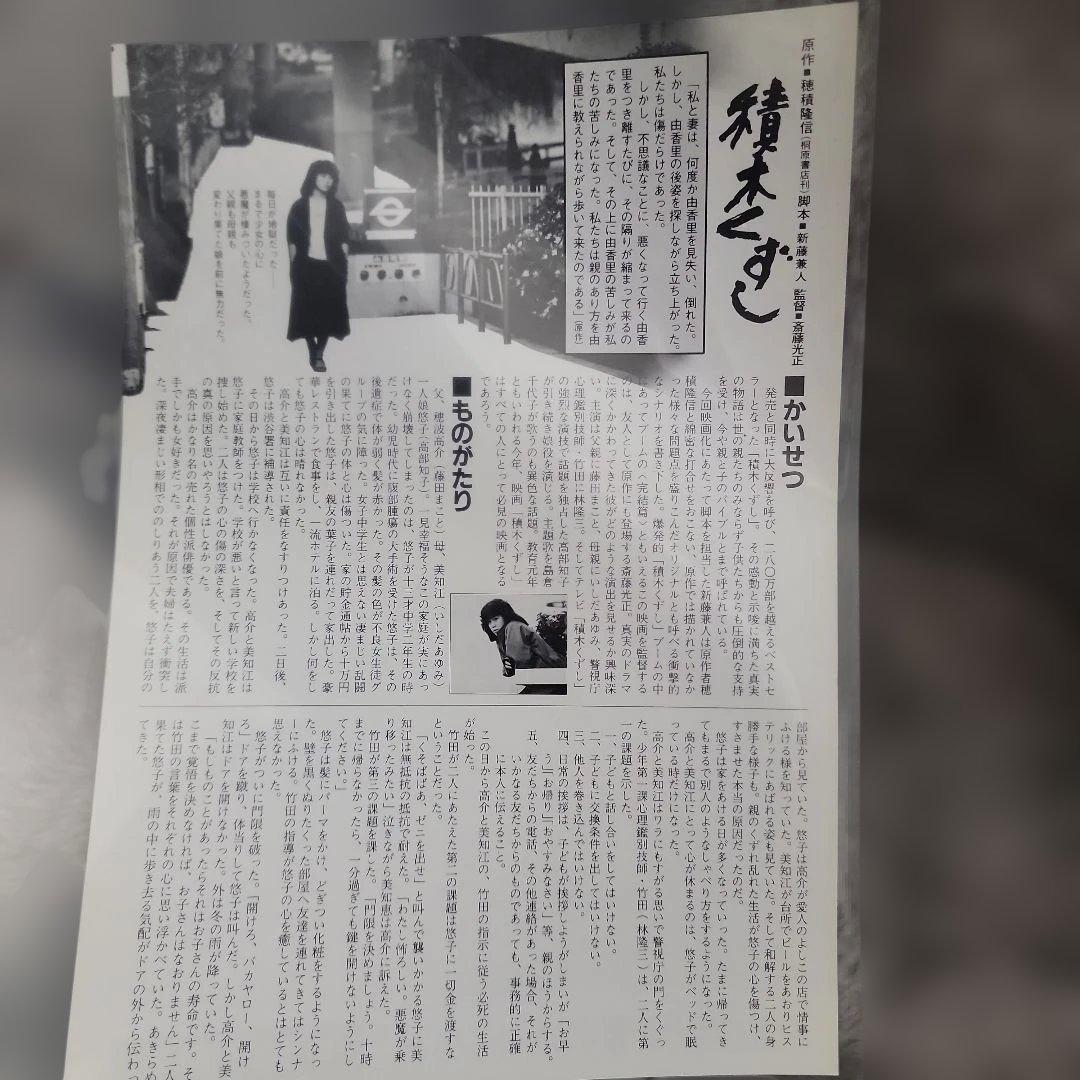 原作■穂積隆信(桐原書店刊)脚本■新藤兼人 監督■斎藤光正
積木くずし
「私と妻は、何度か由香里を見失い、倒れた。
しかし、由香里の後姿を探しながら立ち上がった。
私たちは傷だらけであった。
しかし、不思議なことに、悪くなって行く由香
里をつき離すたびに、その隔りが縮まって来るの
であった。そして、その上に由香里の苦しみが私
たちの苦しみになった。私たちは親のあり方を由
香里に教えられながら歩いて来たのである」(原作)
毎日が地獄だった――
まるで少女の心に
悪魔が棲みついたようだった。
父親も母親も
変わり果てた娘を前に無力だった。
■かいせつ
発売と同時に大反響を呼び、二八〇万部を越えるベストセ
ラーとなった「積木くずし」。その感動と示唆に満ちた真実
の物語は世の親たちのみならず子供たちからも圧倒的な支持
を受け、今や親と子のバイブルとまで呼ばれている。
今回映画化にあたって脚本を担当した新藤兼人は原作者穂
積隆信と綿密な打合せをおこない、原作では描かれていなか
った様々な問題点を盛りこんだオリジナルとも呼べる衝撃的
なシナリオを書き下した。爆発的「積木くずし」ブームの中
にあってブームの〈完結篇〉ともいえるこの映画を監督する
のは、友人として原作にも登場する斎藤光正。真実のドラマ
に深くかかわってきた彼がどのような演出を見せるか興味深
い。主演は父親に藤田まこと、母親にいしだあゆみ、警視庁
心理鑑別技師・竹田に林隆三。そしてテレビ「積木くずし」
の強烈な演技で話題を独占した高部知子
が引き続き娘役を演じる。主題歌を島倉
千代子が歌うのも異色な話題。教育元年
ともいわれる今年、映画「積木くずし」
はすべての人にとって必見の映画となる
であろう。
■ものがたり
父、穂波高介(藤田まこと)母、美知江(いしだあゆみ)
一人娘悠子(高部知子)。一見幸福そうなこの家庭が実にあっ
けなく崩壊してしまったのは、悠子が十三才中学二年生の時
だった。幼児時代に腹部腫瘍の大手術を受けた悠子は、その
後遺症で体が弱く髪が赤かった。その髪の色が不良女生徒グ
ループの気に障った。女子中学生とは思えない凄まじい乱闘
の果てに悠子の体と心は傷ついた。家の貯金通帖から十万円
を引き出した悠子は、親友の葉子を連れだって家出した。豪
華レストランで食事をし、一流ホテルに泊る。しかし何をし
ても悠子の心は晴れなかった。
高介と美知江は互いに責任をなすりつけあった。二日後、
悠子は渋谷署に補導された。
その日から悠子は学校へ行かなくなった。高介と美知江は
悠子に家庭教師をつけた。学校が悪いと言って新しい学校を
捜し始めた。二人は悠子の心の傷の深さを、そしてその反抗
の真の原因を思いやろうとはしなかった。
高介はかなり名の売れた個性派俳優である。その生活は派
手でしかも女好きだった。それが原因で夫婦はたえず衝突し
た。深夜凄まじい形相でののしりあう二人を、悠子は自分の
部屋から見ていた。悠子は高介が愛人のよしこの店で情事に
ふける様を知っていた。美知江が台所でビールをあおりヒス
テリックにあばれる姿も見ていた。そして和解する二人の身
勝手な様子も。親のくずれ乱れた生活が悠子の心を傷つけ、
すさませた本当の原因だったのだ。
悠子は家をあける日が多くなっていった。たまに帰ってき
てもまるで別人のようなしゃべり方をするようになった。
高介と美知江にとって心が休まるのは、悠子がベッドで眠
っている時だけになった。
高介と美知江はワラにもすがる思いで警視庁の門をくぐっ
た。少年第一課心理鑑別技師・竹田(林隆三)は、二人に第
一の課題を示した。
一、子どもと話し合いをしてはいけない。
二、子どもに交換条件を出してはいけない。
三、他人を巻き込んではいけない。
四、日常の挨拶は、子どもが挨拶しようがしまいが「お早
う」「お帰り」「おやすみなさい」等、親のほうからする。
五、友だちからの電話、その他連絡があった場合、それが
いかなる友だちからのものであっても、事務的に正確
に本人に伝えること。
この日から高介と美知江の、竹田の指示に従う必死の生活
が始った。
竹田が二人にあたえた第二の課題は悠子に一切金を渡すな
ということだった。
「くそばばあ、ゼニを出せ」と叫んで襲いかかる悠子に美
知江は無抵抗の抵抗で耐えた。「わたし怖ろしい。悪魔が乗
り移ったみたい」泣きながら美知恵は高介に訴えた。
竹田が第三の課題を課した。「門限を決めましょう。十時
までに帰らなかったら、一分過ぎても鍵を開けないようにし
てください。」
悠子は髪にパーマをかけ、どぎつい化粧をするようになっ
た。壁を黒くぬりたくった部屋へ友達を連れてきてはシンナ
ーにふける。竹田の指導が悠子の心を癒しているとはとても
思えなかった。
悠子がついに門限を破った。「開けろ、バカヤロー、開け
ろ」ドアを蹴り、体当りして悠子は叫んだ。しかし高介と美
知江はドアを開けなかった。外は冬の雨が降っていた。
「もしものことがあったらそれはお子さんの寿命です。そ
こまで覚悟を決めなければ、お子さんはなおりません」二人
は竹田の言葉をそれぞれの心に思い浮かべていた。あきらめ
果てた悠子が、雨の中に歩き去る気配がドアの外から伝わっ
てきた。